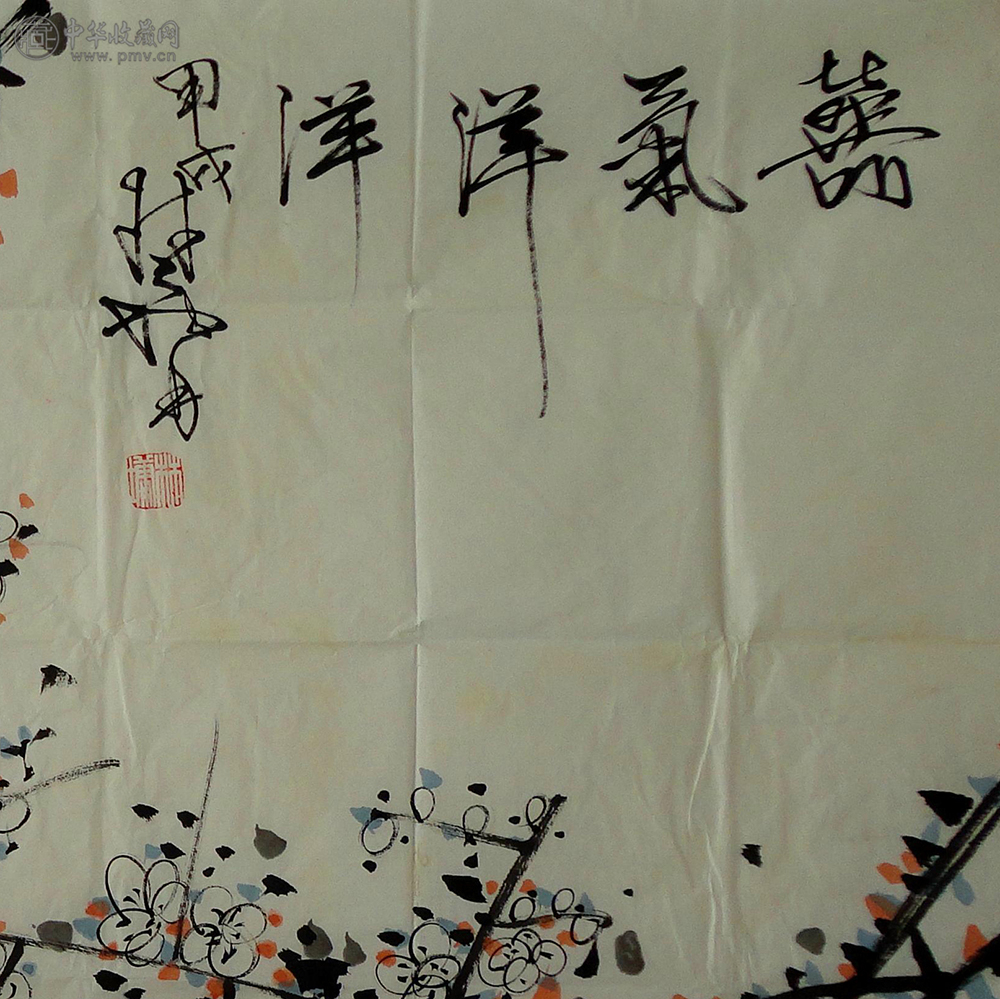 中华收藏网
www.pmv.cn
囍氣洋洋
甲戌
林墉